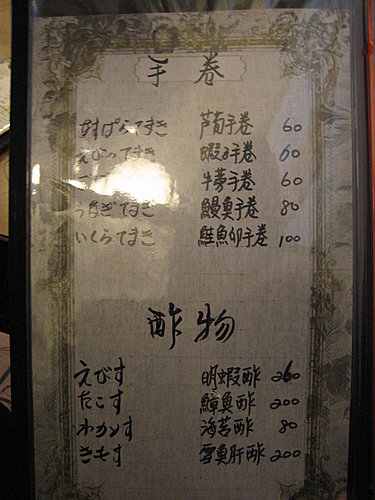 手巻
すぱらてまき 芦荀手巻 60
えびってまき 蝦子手巻 60
牛蒡手巻 60
うなぎてまき 鰻魚手巻 80
いくらてまき 鮭魚卵手巻 100
酢物
えびす 明蝦酢 260
たこす 鱆魚酢 200
わかめす 海苔酢 80
きもす 雪魚肝酢 200